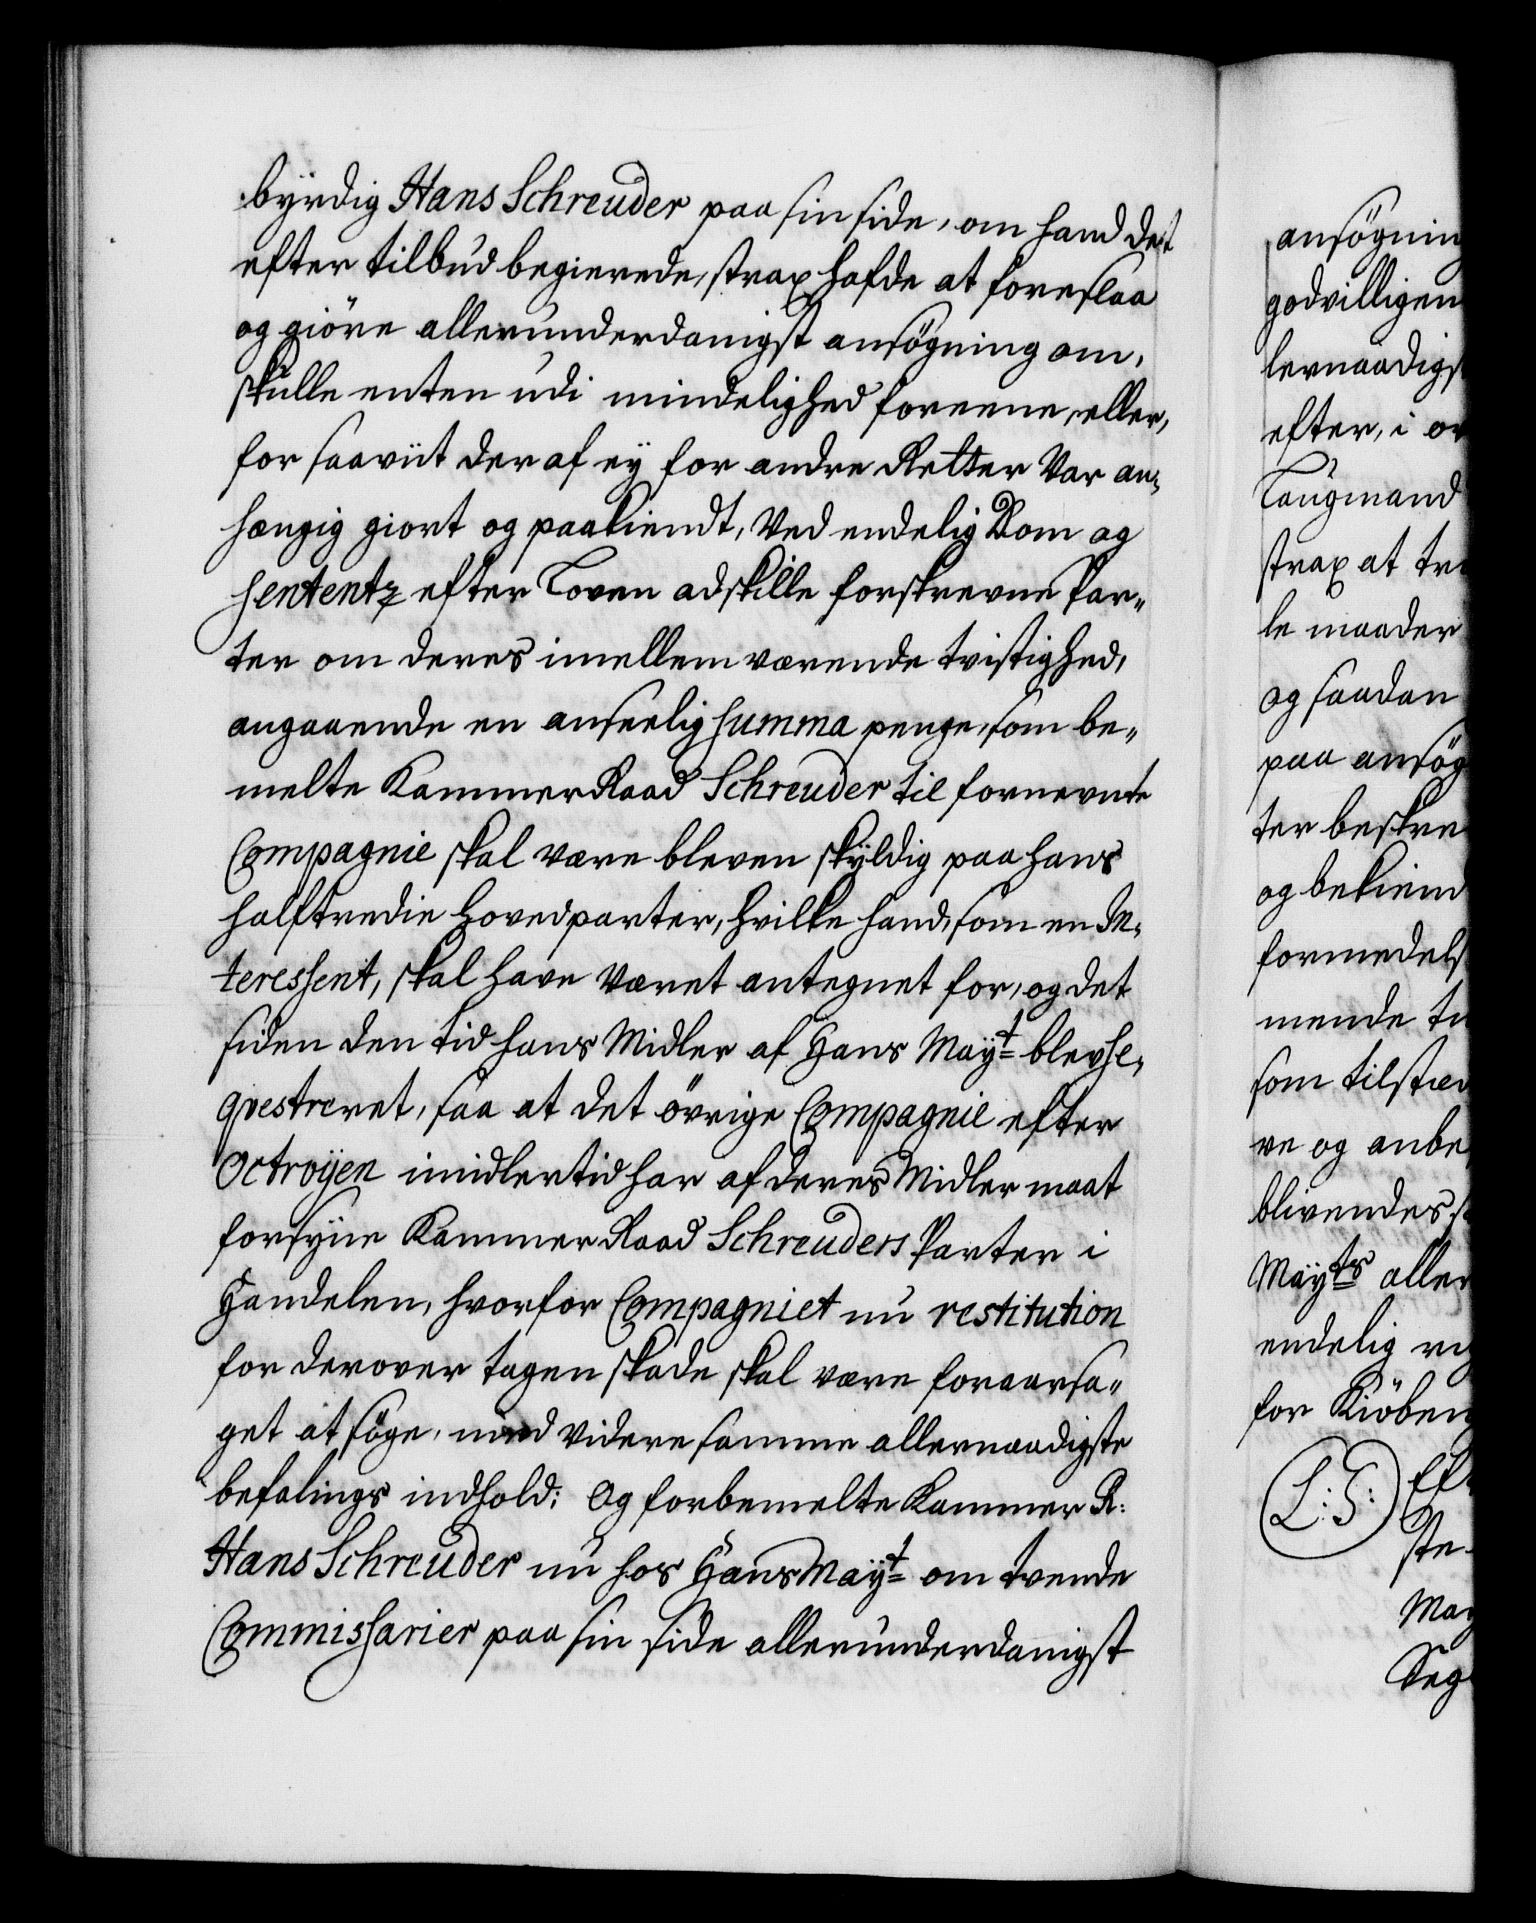 byrdig Hans Schreuder paa sin side, om hand det
efter tilbud begierede, strax hafde at foreslaa
og giöre allerunderdanigst ansögning om,
skulle enten udi mindelighed foreene, eller,
for saaviit deraf ey for andre Retter var an,,
hængig giort og paakiendt, ved endelig Dom og
Sententz efter Loven adskille forskrevne Par,,
ter om deres imellem værende tvistighed,
angaaende en anseelig Summa penge, som be,,
melte Kammer Raad Schreuder til fornevnte
Compagnie skal være bleven skyldig paa hans
halftredie hovedparter, hvilke hand, som en In,
teressent, skal have været antegnet for, og det
siden den tid hans Midler af Hans May:t blev se,
qvestreret, saa at det övrige Compagnie efter
Octroyen imidlertid har af deres Midler maat
forsyne Kammer Raad Schreuders Parter i
Handelen, hvorfor Compagniet nu restitution
for derover tagen skade skal være foraarsa,,
get at söge, med videre samme allernaadigste
befalings indhold: Og forbemelte Kammer R:
Hans Schreuder nu hos Hans May:t om tvende
Commissarier paa sin side allerunderdanigst
ansögning
godvilligen
lernaadigst
efter, i
Laugmand
strax at
le maader
og saadan
paa ansög
ter beskre
og bekiend
formedelst
mende
som tilstæv
re og anbe
blivendes
Mayts aller
endelig
for Kiöben
L: S:
Eft
ste
May
Seg